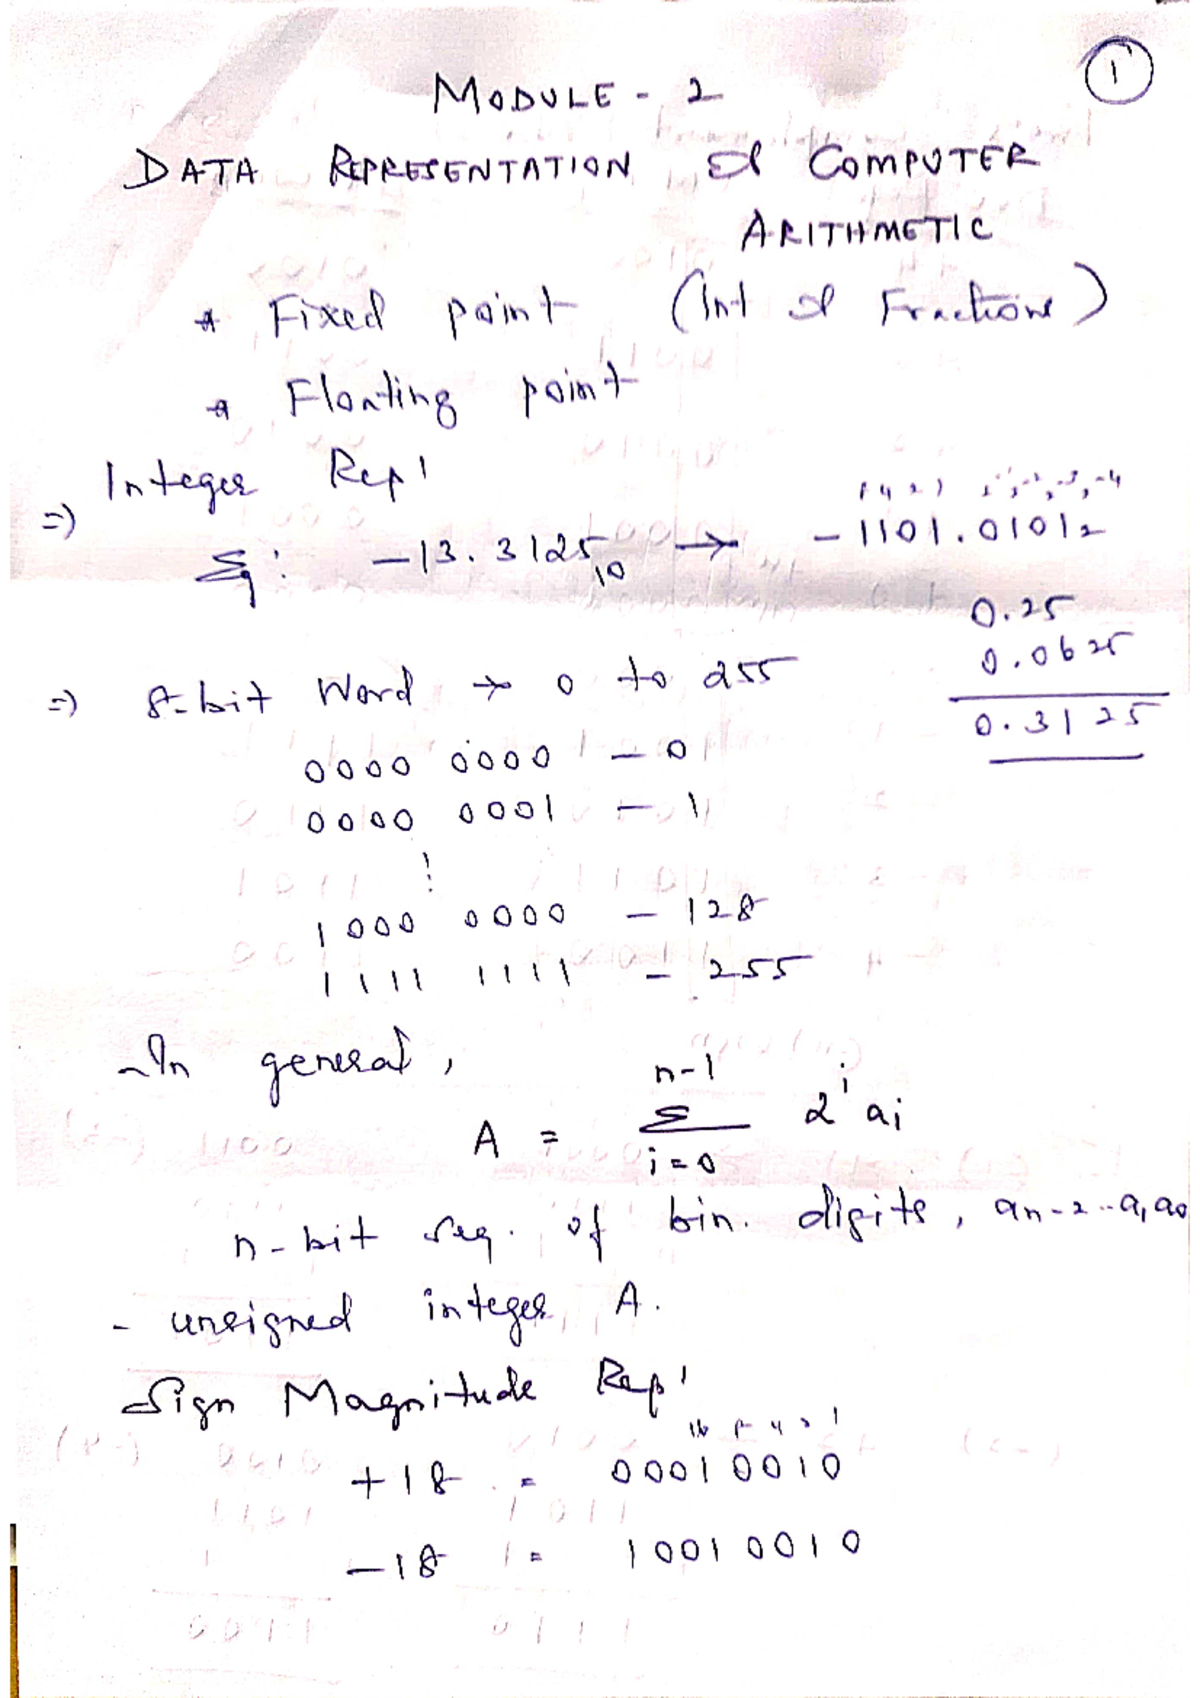 1
MODULE - 2
DATA REPRESENTATION & COMPUTER
ARITHMETIC
* Fixed point (Int & Fractions)
* Floating point
Integer Rep'
8 4 2 1 -1 -2 -3 -4
=> Eg: -13.3125₁₀ → -1101.0101₂
0.25
0.0625
0.3125
=> 8-bit Word → 0 to 255
0000 0000 - 0
0000 0001 - 1
⋮
1000 0000 - 128
1111 1111 - 255
-In general,
n-1
A = Σ 2ⁱ aᵢ
i=0
n-bit seq. of bin. digits, an-2..a₁a₀
- unsigned integer A.
Sign Magnitude Rep'
16 8 4 2 1
+18 = 00010010
-18 = 10010010